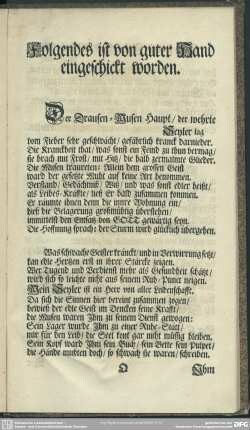 Folgendes ist von guter Hand
eingeschickt worden.
Der Drausen-Musen Haupt, der wehrte
Seyler lag
vom Fieber sehr geschwächt, gefährlich kranck darnieder.
Die Kranckheit that, was sonst ein Feind zu thun vermag,
sie brach mit Frost, mit Hitz, die bald zermalmte Glieder.
Die Musen traureten: Allein dem grossen Geist
ward der gesetzte Muht auf keine Art benommen.
Verstand, Gedächtniß, Witz, und was sonst edler heißt,
als Leibes-Kräffte, ließ Er bald zusammen kommen.
Er räumte ihnen denn die innre Wohnung ein,
hieß die Belagerung großmühtig überstehen,
und des Entsatz von GOTT gewärtig seyn.
Die Hoffnung sprach: der Sturm wird glücklich übergehen.
Was schwache Geister kränckt, und in Verwirrung setzt,
kan edle Hertzen erst in ihrer Stärcke zeigen.
Wer Tugend und Verdienst mehr als Gesundheit schätzt,
wird sich so leichte nicht aus seinem Ruh-Punct neigen.
Mein Seyler ist ein Herr von aller Leidenschafft.
Da sich die Sinnen hier bereint zusammen zogen,
bewieß der edle Geist im Dencken seine Krafft,
die Musen waren Ihm zu seinem Dienst gewogen:
Sein Lager wurde Ihm zu einer Ruhe-Statt,
nur für den Leib, die Seel kont gar nicht müßig bleiben.
Sein Kopf ward Ihm sein Buch, sein Bette sein Pulpet,
die Hände mußten doch, so schwach sie waren, schreiben.
Q
Ihm